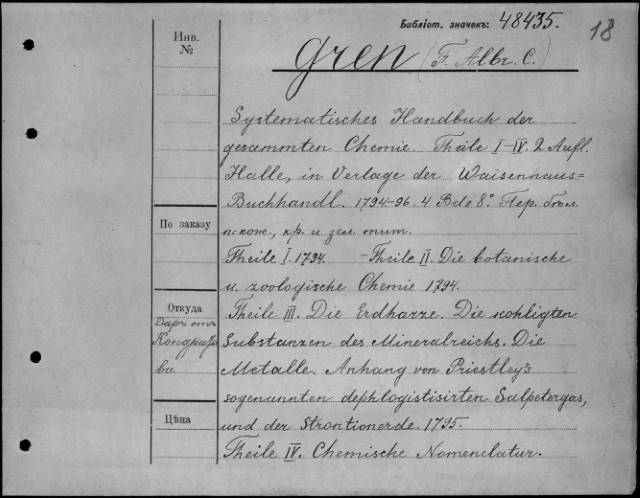 Библіот. значекъ: 48435.
18
Инв.
№
Gren (F. Albr. C.)
Systematisches Handbuch der
gesammten Chemie. Theile I-IV. 2 Aufl.
Halle, in Verlage der Waisenhaus=
Buchhandl. 1794-96. 4 Bde 8°. Пер.
кож., кр. и зел. тит.
По заказу
Theile I. 1794. - Theile II. Die botanische
u. zoologische Chemie 1794.
Откуда
Даръ отъ
Кондратье
ва.
Theile III. Die Erdharze. Die kohligten
Substanzen des Mineralreichs. Die
Metalle. Anhang von Priestley's
sogenannten dephlogistisirten Salpetergas,
und der Strontionerde. 1795.
Цѣна
Theile IV. Chemische Nomenclatur.